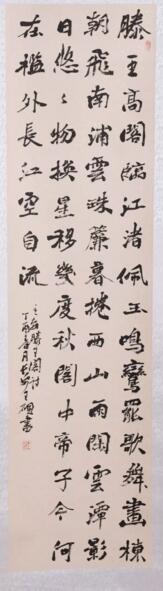 滕王高閣臨江渚佩玉鳴鸞罷歌舞畫棟
朝飛南浦雲珠簾暮捲西山雨閑雲潭影
日悠々物換星移幾度秋閣中帝子今何
在檻外長江空自流
王勃滕王閣詩
丁酉春月 書